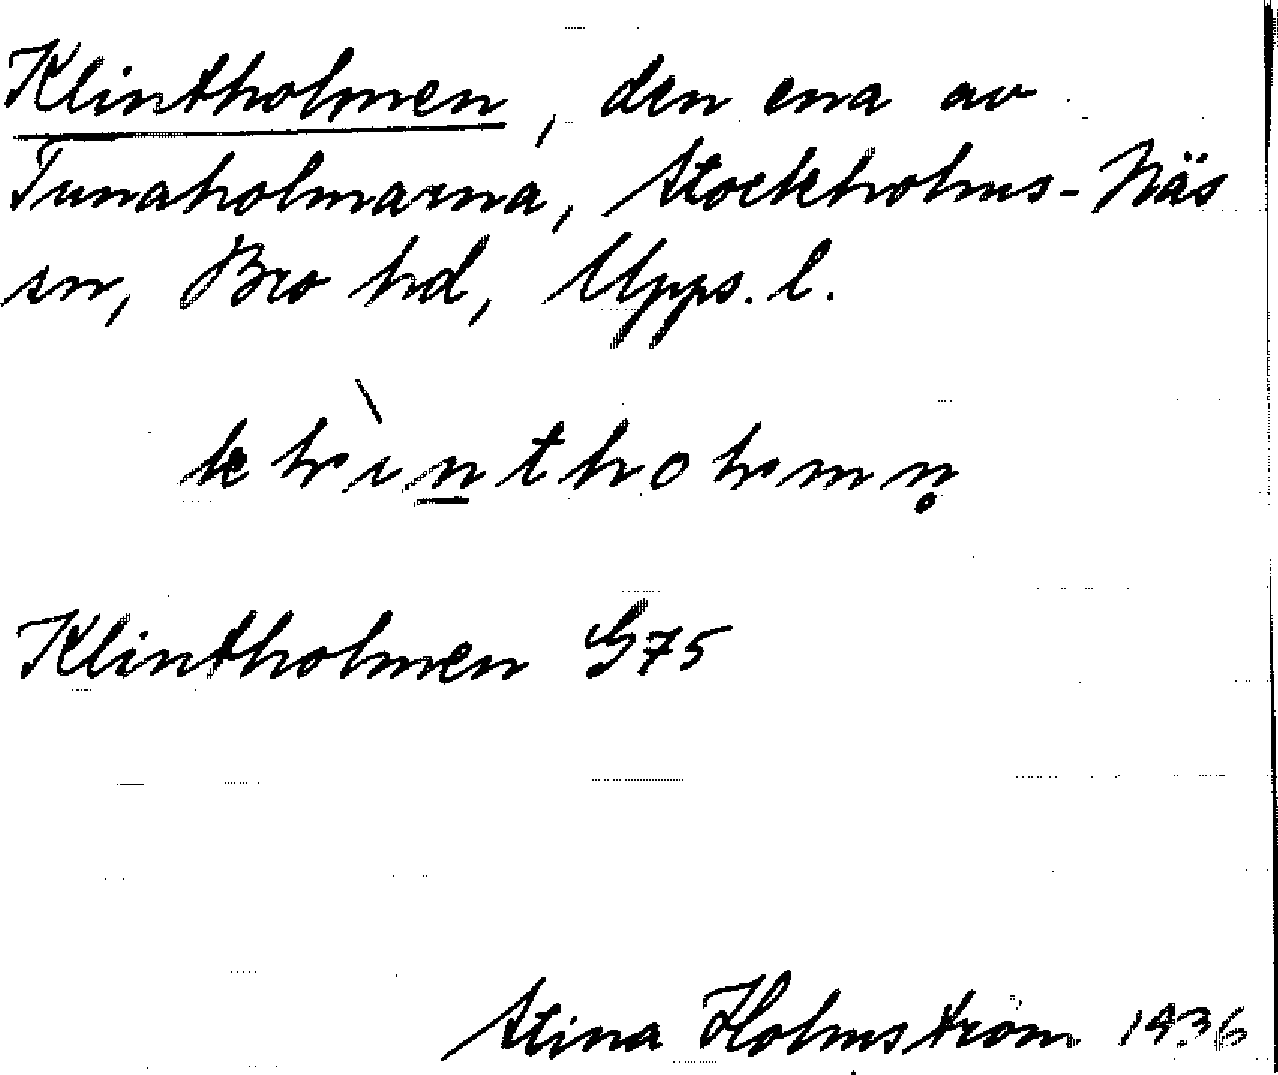 Klintholmen, den ena av
Tunaholmarna, Stockholms-Näs
sn, Bro hd, Upps. l.
Klintholmen G75
Stina Holmström 1936